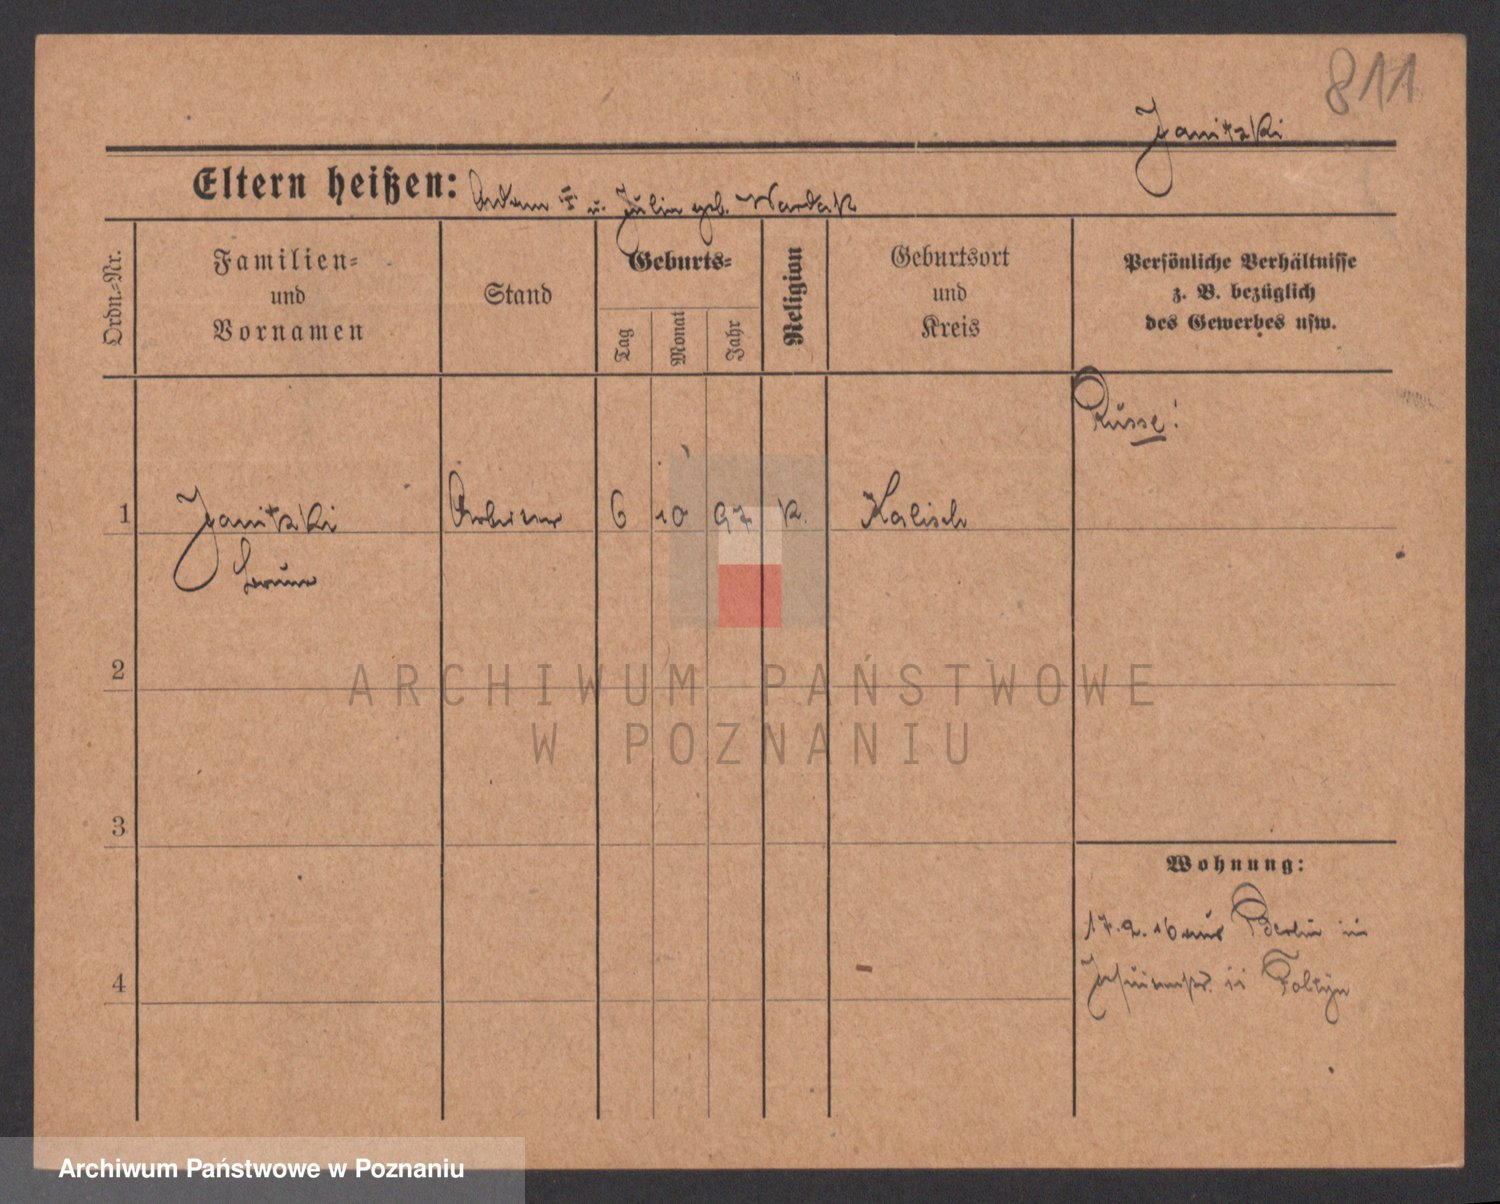 811
Janitzki
Eltern heißen: Adam u. Julia geb. Wardak
Ordn.-Nr.
Familien-
und
Vornamen
Stand
Geburts-
Tag
Monat
Jahr
Religion
Geburtsort
und
Kreis
Persönliche Verhältnisse
z. B. bezüglich
des Gewerbes usw.
Russe!
1 Janitzki Arbeiter 6 10 97 k. Kalisch
2
ARCHIWUM PAŃSTWOWE
W POZNANIU
3
Wohnung:
17.2.16 aus Berlin in
Jesuitenstr. 11
4
Archiwum Państwowe w Poznaniu